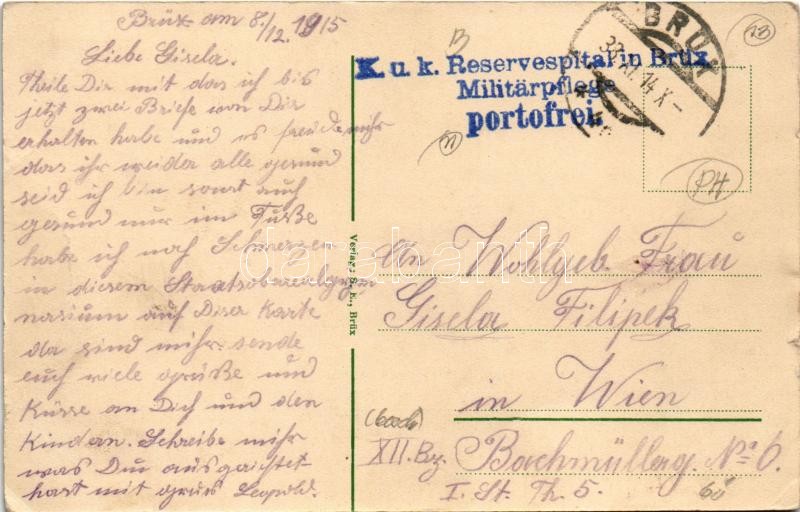 Brüx am 8./12. 1915
Liebe Gisela.
Theile Dir mit das ich bis
jetzt zwei Briefe von Dir
erhalten habe und es freide mihr
das ihr weider alle gesund
seid ich bin sonst auch
gesund nur im Fuße
habe ich noch Schmerzen
in diesem Staatsoberealgym
nasium auf Diser Karte
da sind mihr. sende
euch viele grüße und
Küsse an Dich und den
Kindern. Schreibe mihr
was Du ausgerichtet
hast mit gruss Leopold.
Verlag: S. K., Brüx
K. u. k. Reservespital in Brüx
Militärpflege
portofrei.
BRÜX
An Wohlgeb. Frau
Gisela Filipek
in Wien
XII. Bez. Bachmüllerg. No 6.
I. St. Th. 5.
13
B
n
PH
60
darabanth